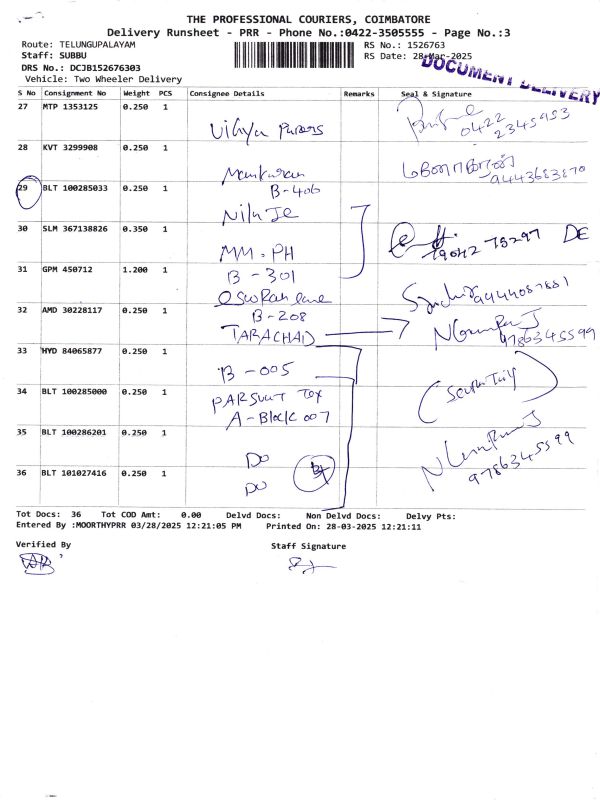 THE PROFESSIONAL COURIERS, COIMBATORE
Delivery Runsheet - PRR - Phone No.:0422-3505555 - Page No.:3
Route: TELUNGUPALAYAM
RS No.: 1526763
Staff: SUBBU
RS Date: 28-Mar-2025
DRS No.: DCJB152676303
DOCUMENT DELIVERY
Vehicle: Two Wheeler Delivery
S No Consignment No Weight PCS Consignee Details Remarks Seal & Signature
27 MTP 1353125 0.250 1
0422
2345953
28 KVT 3299908 0.250 1
9443683870
29 BLT 100285033 0.250 1
B-406
30 SLM 367138826 0.350 1
MM.PH
DE
31 GPM 450712 1.200 1
B-301
32 AMD 30228117 0.250 1
B-208
TARACHAD
9786345599
33 HYD 84065877 0.250 1
B-005
34 BLT 100285000 0.250 1
A-Block 007
35 BLT 100286201 0.250 1
DO
9786345599
36 BLT 101027416 0.250 1
DO
Tot Docs: 36 Tot COD Amt: 0.00 Delvd Docs: Non Delvd Docs: Delvy Pts:
Entered By :MOORTHYPRR 03/28/2025 12:21:05 PM Printed On: 28-03-2025 12:21:11
Verified By Staff Signature